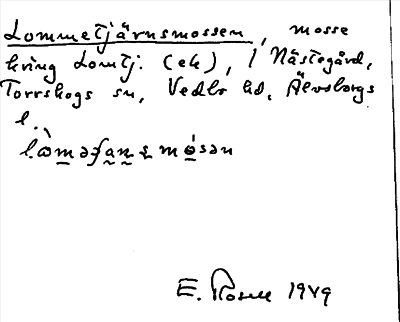 Lommetjärnsmossen, mosse
kring Lomtj. (ek), i Nästegård,
Torrskogs sn, Vedbo hd, Älvsborgs
l.
E. Rosell 1949